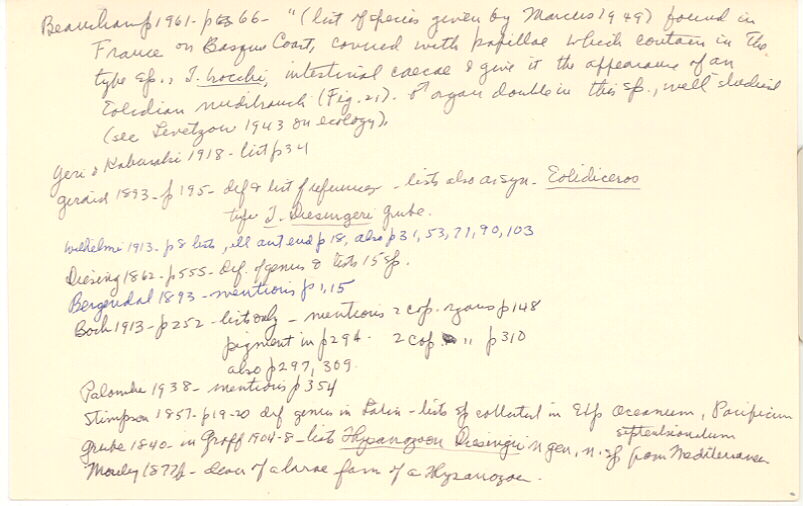 Beauchamp 1961 - p 66 - "(list of species given by Marcus 1949) found in
France on Basque Coast, covered with papillae which contain in the
type sp., T. brocchi, intestinal caecae & give it the appearance of an
Eolidian nudibranch (Fig. 21). ♂ organ double in this sp., well studied
(see Levetzow 1943 on ecology).
Yeri & Kaburaki 1918 - list p 34
Girard 1893 - p 195 - def & list of references - lists also as syn. Eolidiceros
type T. Diesingeri Grube.
Wilhelmi 1913 - p 8 lists, ill ant end p 18, also p 31, 53, 77, 90, 103
Diesing 1862 - p 555 - Def. of genus & lists 15 sp.
Bergendal 1893 - mentions p 1, 15
Bock 1913 - p 252 - lists only - mentions 2 cop. organs p 148
pigment in p 294. 2 cop " p 310
also p 297, 309.
Palombi 1938 - mentions p 354
Stimpson 1857 - p 19-20 def genus in Latin - lists sp collected in Oceanum, Pacificum
septentrionalem
Grube 1840 - in Graff 1904-8 - lists Thysanozoon Diesingii n gen, n. sp from Mediterranean
Mosely 1877 - descr of a larvae form of a Thysanozoon.